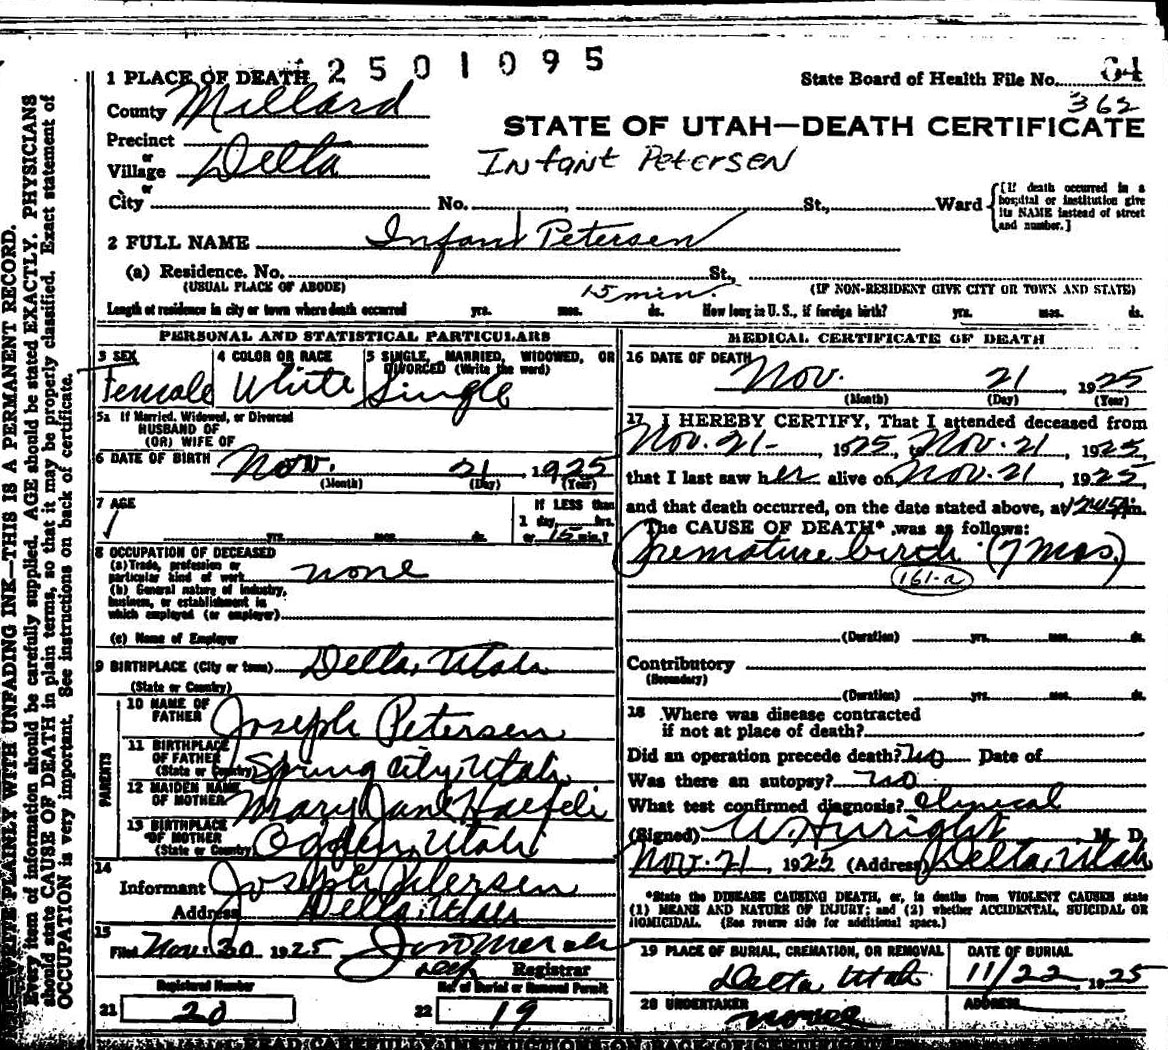 2501095
1 PLACE OF DEATH
State Board of Health File No. 64
County Millard
362
STATE OF UTAH—DEATH CERTIFICATE
Precinct
or
Village Delta
Infant Petersen
or
City No. , St., Ward [If death occurred in a hospital or institution give its NAME instead of street and number.]
2 FULL NAME Infant Petersen
(a) Residence. No. St.,
(USUAL PLACE OF ABODE) (IF NON-RESIDENT GIVE CITY OR TOWN AND STATE)
15 min.
Length of residence in city or town where death occurred yrs. mos. ds. How long in U. S., if foreign birth? yrs. mos. ds.
PERSONAL AND STATISTICAL PARTICULARS
3 SEX
Female
4 COLOR OR RACE
White
5 SINGLE, MARRIED, WIDOWED, OR
DIVORCED (Write the word)
Single
5a If Married, Widowed, or Divorced
HUSBAND OF
(OR) WIFE OF
6 DATE OF BIRTH Nov. 21 1925
(Month) (Day) (Year)
7 AGE
yrs. mos. ds.
If LESS than
1 day, hrs.
or 15 min.?
8 OCCUPATION OF DECEASED
(a) Trade, profession or
particular kind of work none
(b) General nature of industry,
business, or establishment in
which employed (or employer)
(c) Name of Employer
9 BIRTHPLACE (City or town) Delta, Utah
(State or Country)
PARENTS
10 NAME OF
FATHER Joseph Petersen
11 BIRTHPLACE
OF FATHER
(State or Country) Spring City, Utah
12 MAIDEN NAME
OF MOTHER Mary Jane Haefeli
13 BIRTHPLACE
OF MOTHER
(State or Country) Ogden, Utah
14
Informant Joseph Petersen
Address Delta, Utah
15
Filed Nov. 30 1925
Registrar
Registered Number
21 20
No. of Burial or Removal Permit
22 19
MEDICAL CERTIFICATE OF DEATH
16 DATE OF DEATH
Nov. 21 1925
(Month) (Day) (Year)
17 I HEREBY CERTIFY, That I attended deceased from
Nov. 21- , 1925, to Nov. 21 , 1925,
that I last saw her alive on Nov. 21 , 1925,
and that death occurred, on the date stated above, at 1245 A m.
The CAUSE OF DEATH* was as follows:
Premature birth (7 mos.)
161-a
(Duration) yrs. mos. ds.
Contributory
(Secondary)
(Duration) yrs. mos. ds.
18 Where was disease contracted
if not at place of death?
Did an operation precede death? no Date of
Was there an autopsy? no
What test confirmed diagnosis? Clinical
(Signed) M. D.
Nov. 21 , 1925 (Address) Delta, Utah
*State the DISEASE CAUSING DEATH, or, in deaths from VIOLENT CAUSES state
(1) MEANS AND NATURE OF INJURY; and (2) whether ACCIDENTAL, SUICIDAL OR
HOMICIDAL. (See reverse side for additional space.)
19 PLACE OF BURIAL, CREMATION, OR REMOVAL
Delta Utah
DATE OF BURIAL
11/22 1925
20 UNDERTAKER
none
ADDRESS
WRITE PLAINLY WITH UNFADING INK—THIS IS A PERMANENT RECORD.
Every item of information should be carefully supplied. AGE should be stated EXACTLY. PHYSICIANS
should state CAUSE OF DEATH in plain terms, so that it may be properly classified. Exact statement of
OCCUPATION is very important. See instructions on back of certificate.
READ CAREFULLY INSTRUCTIONS ON BACK OF CERTIFICATE